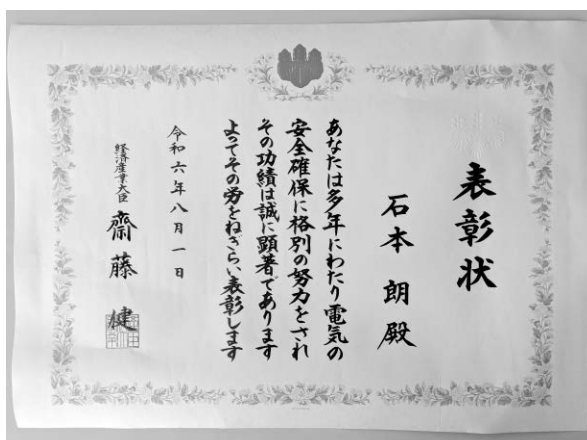 表彰状
石本朗殿
あなたは多年にわたり電気の
安全確保に格別の努力をされ
その功績は誠に顕著であります
よってその労をねぎらい表彰します
令和六年八月一日
経済産業大臣 齋藤健